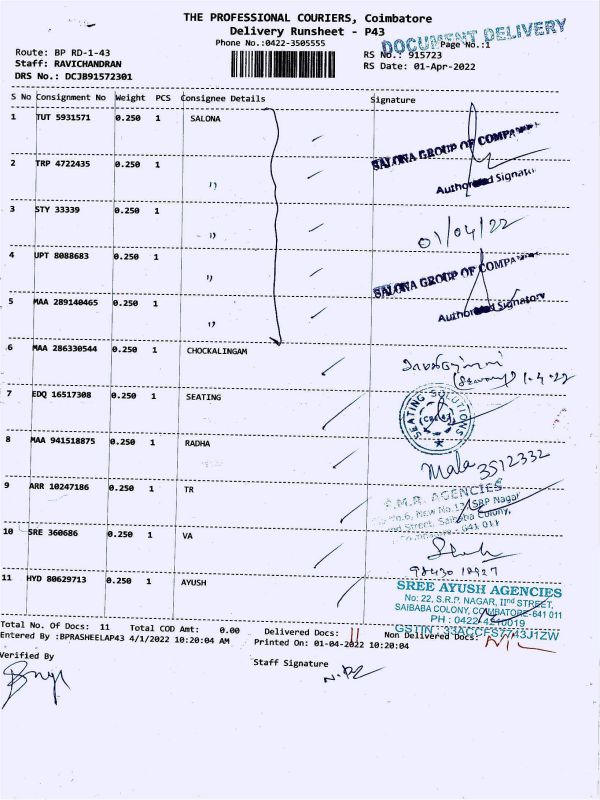 THE PROFESSIONAL COURIERS, Coimbatore
Delivery Runsheet - P43
Phone No.:0422-3505555
DOCUMENT DELIVERY
Page No.:1
Route: BP RD-1-43
RS No.: 915723
Staff: RAVICHANDRAN
RS Date: 01-Apr-2022
DRS No.: DCJB91572301
S No Consignment No Weight PCS Consignee Details Signature
1 TUT 5931571 0.250 1 SALONA
SALONA GROUP OF COMPANIES
2 TRP 4722435 0.250 1 "
Authorised Signatory
3 STY 33339 0.250 1 "
01/04/22
4 UPT 8088683 0.250 1 "
SALONA GROUP OF COMPANIES
5 MAA 289140465 0.250 1 "
Authorised Signatory
6 MAA 286330544 0.250 1 CHOCKALINGAM
1-4-22
7 EDQ 16517308 0.250 1 SEATING
SEATING SOLUTIONS
8 MAA 941518875 0.250 1 RADHA
Mala 3512332
9 ARR 10247186 0.250 1 TR
AGENCIES
No.6, New No.17, SRP Nagar
IInd Street, Saibaba Colony,
Coimbatore - 641 011
10 SRE 360686 0.250 1 VA
11 HYD 80629713 0.250 1 AYUSH
SREE AYUSH AGENCIES
No: 22, S.R.P. NAGAR, IInd STREET,
SAIBABA COLONY, COIMBATORE-641 011
PH : 0422-4210019
GSTIN : 33ACCFS7743J1ZW
Total No. Of Docs: 11 Total COD Amt: 0.00 Delivered Docs: 11 Non Delivered Docs: NIL
Entered By :BPRASHEELAP43 4/1/2022 10:20:04 AM Printed On: 01-04-2022 10:20:04
Verified By
Staff Signature